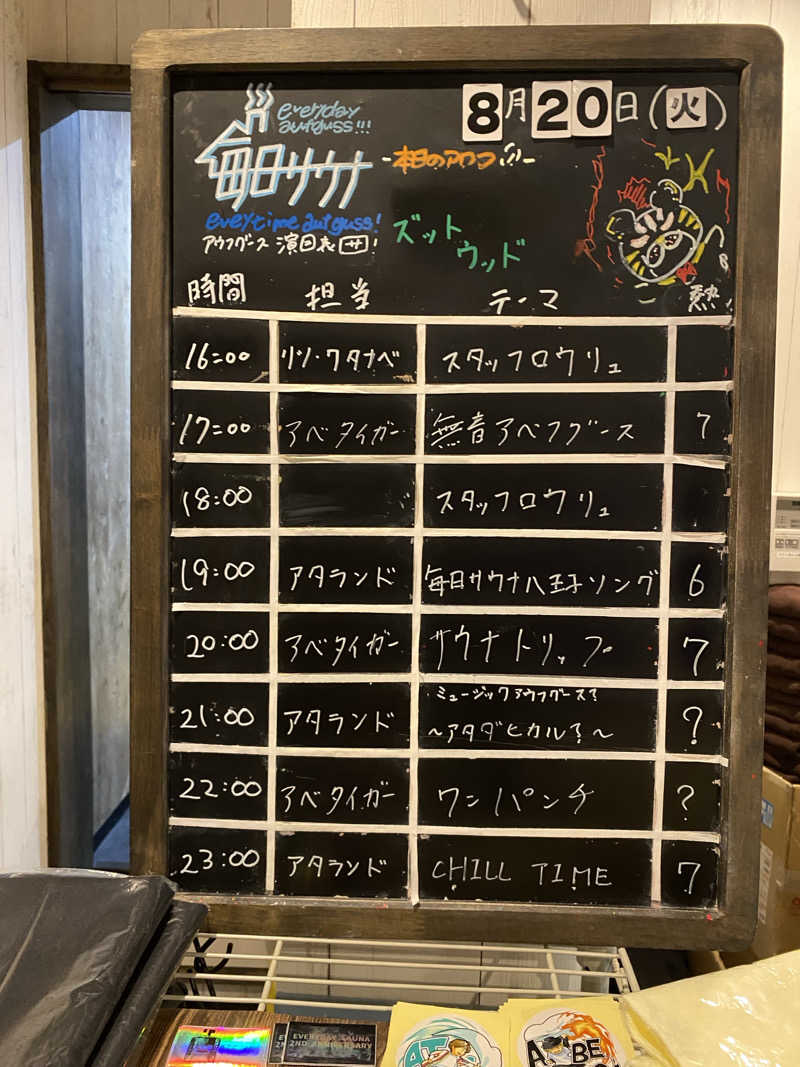 everyday
autguss!!!
毎日サウナ
8月20日(火)
-本日のアウフ!!-
everytime autguss!
アウフグース 演目表 サ!
ズットウッド
熱!
時間 担当 テーマ
16:00 リツ・ワタナベ スタッフロウリュ
17:00 アベタイガー 無音アベフグース 7
18:00 スタッフロウリュ
19:00 アタランド 毎日サウナ八王子ソング 6
20:00 アベタイガー サウナトリップ 7
21:00 アタランド ミュージックアウフグース?
~アタダヒカル?~ ?
22:00 アベタイガー ワンパンチ ?
23:00 アタランド CHILL TIME 7
EVERYDAY SAUNA
2ND ANNIVERSARY
AT
ABE